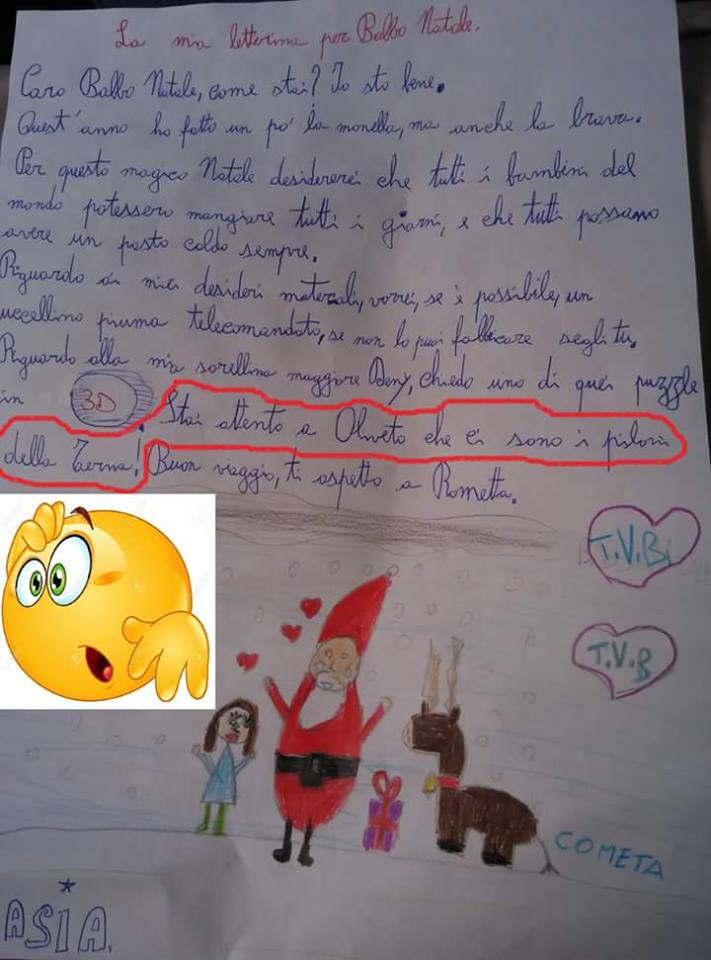 La mia letterina per Babbo Natale.
Caro Babbo Natale, come stai? Io sto bene.
Quest'anno ho fatto un po' la monella, ma anche la brava.
Per questo magico Natale desidererei che tutti i bambini del
mondo potessero mangiare tutti i giorni, e che tutti possano
avere un posto caldo sempre.
Riguardo ai miei desideri materiali, vorrei, se è possibile, un
uccellino piuma telecomandato, se non lo puoi fabbricare scegli tu.
Riguardo alla mia sorellina maggiore Deny, chiedo uno di quei puzzle
in 3D. Stai attento a Oliveto che ci sono i piloni
della Terna! Buon viaggio, ti aspetto a Rometta.
T.V.B
T.V.B
COMETA
ASIA.